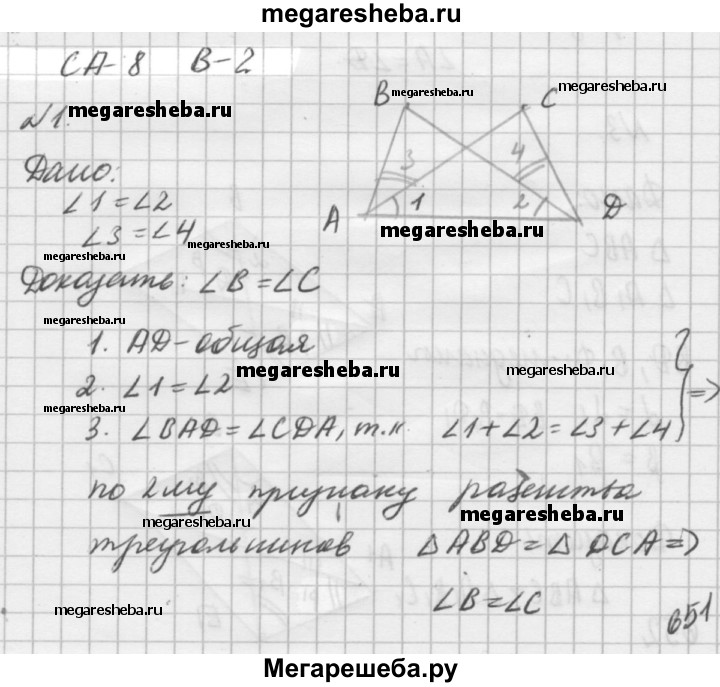 megaresheba.ru
СА-8 В-2
№1.
megaresheba.ru
B
megaresheba.ru
C
megaresheba.ru
3
4
1
2
A
D
megaresheba.ru
Дано:
∠1=∠2
∠3=∠4
megaresheba.ru
megaresheba.ru
Доказать: ∠B=∠C
megaresheba.ru
1. AD-общая
2. ∠1=∠2
megaresheba.ru
megaresheba.ru
megaresheba.ru
3. ∠BAD=∠CDA, т.к. ∠1+∠2=∠3+∠4 } =>
по 2му признаку равенства
megaresheba.ru
megaresheba.ru
треугольников △ABD=△DCA=>
megaresheba.ru
∠B=∠C
651
Мегарешеба.ру